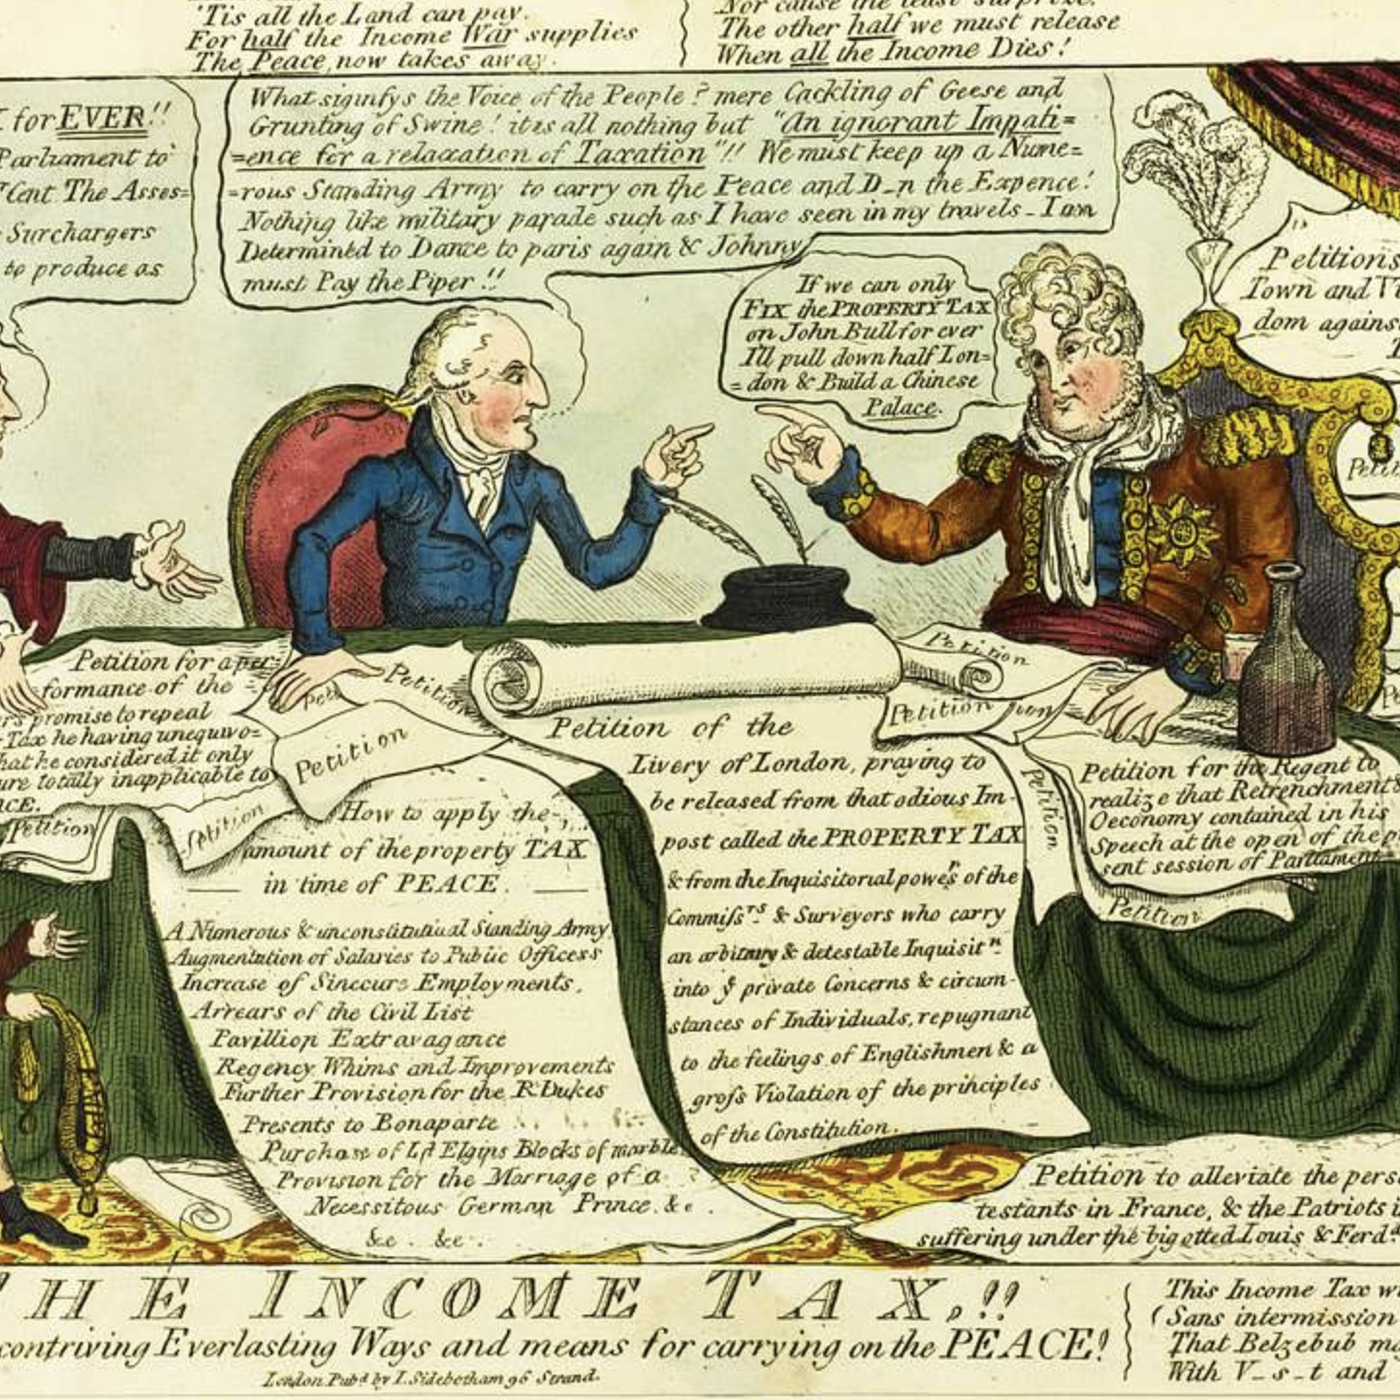 'Tis all the Land can pay.
For half the Income War supplies
The Peace now takes away.
Nor cause the least surprize.
The other half we must release
When all the Income Dies!
for EVER!!
Parliament to
Cent The Asses=
Surchargers
to produce as
What signifys the Voice of the People? mere Cackling of Geese and
Grunting of Swine! it is all nothing but "An ignorant Impati=
=ence for a relaxation of Taxation"!! We must keep up a Nume=
=rous Standing Army to carry on the Peace and D_n the Expence!
Nothing like military parade such as I have seen in my travels _ I am
Determined to Dance to paris again & Johnny
must Pay the Piper!!
If we can only
FIX the PROPERTY TAX
on John Bull for ever
I'll pull down half Lon=
=don & Build a Chinese
Palace.
Petitions
Town and Vi
dom agains
T
Petit
Petition for a per=
formance of the =
rs promise to repeal
Tax he having unequivo=
hat he considered it only
ure totally inapplicable to
ACE.
Petition
Petition
Petition
Peti
Petition
Petition
Petition
ion
Petition
Petition
How to apply the
amount of the property TAX
in time of PEACE.
A Numerous & unconstitutiual Standing Army
Augmentation of Salaries to Public Officess
Increase of Sinecure Employments,
Arrears of the Civil List
Pavillion Extravagance
Regency Whims and Improvements
Further Provision for the R Dukes
Presents to Bonaparte
Purchase of Ld Elgins Blocks of marble
Provision for the Marriage of a
Necessitous German Prince. &c.
&c. &c.
Petition of the
Livery of London, praying to
be released from that odious Im-
post called the PROPERTY TAX
& from the Inquisitorial powers of the
Commissrs & Surveyors who carry
an arbitrary & detestable Inquisitn
into ye private Concerns & circum-
stances of Individuals, repugnant
to the feelings of Englishmen & a
gross Violation of the principles
of the Constitution.
Petition for the Regent to
realize that Retrenchment &
Oeconomy contained in his
Speech at the open of the p
sent session of Parliament
Petition
Petition to alleviate the pers
testants in France, & the Patriots i
suffering under the bigotted Louis & Ferd
HE INCOME TAX,!!
contriving Everlasting Ways and means for carrying on the PEACE!
London Pubd by I. Sidebotham 96 Strand.
This Income Tax wi
(Sans intermission
That Belzebub ma
With V_s_t and